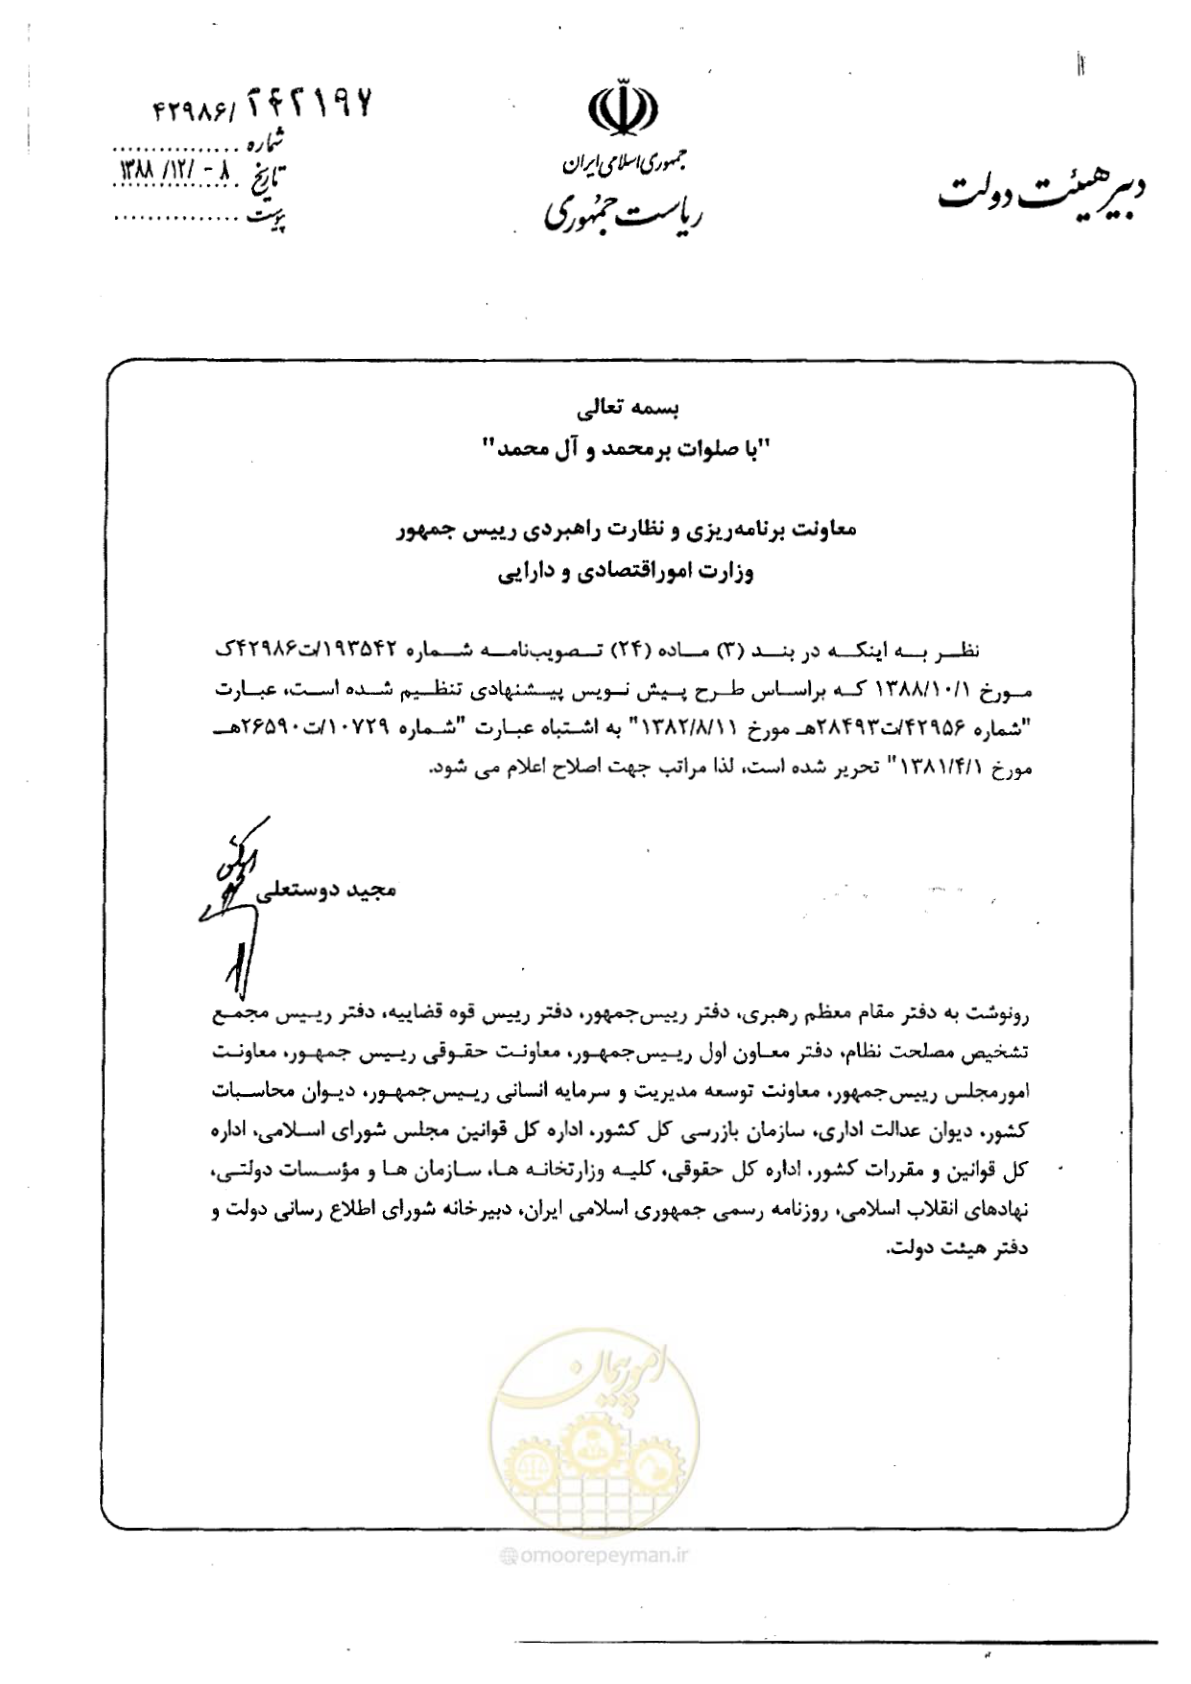 دبیر هیئت دولت
جمهوری اسلامی ایران
ریاست جمهوری
۴۲۹۸۶/۲۴۲۱۹۷
شماره
تاریخ ۱۳۸۸/۱۲/-۸
پیوست
بسمه تعالی
"با صلوات بر محمد و آل محمد"
معاونت برنامه‌ریزی و نظارت راهبردی رییس جمهور
وزارت امور اقتصادی و دارایی
نظر به اینکه در بند (۳) ماده (۲۴) تصویب‌نامه شماره ۱۹۳۵۴۲/ت۴۲۹۸۶ک
مورخ ۱۳۸۸/۱۰/۱ که براساس طرح پیش نویس پیشنهادی تنظیم شده است، عبارت
"شماره ۴۲۹۵۶/ت۲۸۴۹۳هـ مورخ ۱۳۸۲/۸/۱۱" به اشتباه عبارت "شماره ۱۰۷۲۹/ت۲۶۵۹۰هـ
مورخ ۱۳۸۱/۴/۱" تحریر شده است، لذا مراتب جهت اصلاح اعلام می شود.
مجید دوستعلی
رونوشت به دفتر مقام معظم رهبری، دفتر رییس‌جمهور، دفتر رییس قوه قضاییه، دفتر رییس مجمع
تشخیص مصلحت نظام، دفتر معاون اول رییس‌جمهور، معاونت حقوقی رییس جمهور، معاونت
امورمجلس رییس‌جمهور، معاونت توسعه مدیریت و سرمایه انسانی رییس‌جمهور، دیوان محاسبات
کشور، دیوان عدالت اداری، سازمان بازرسی کل کشور، اداره کل قوانین مجلس شورای اسلامی، اداره
کل قوانین و مقررات کشور، اداره کل حقوقی، کلیه وزارتخانه ها، سازمان ها و مؤسسات دولتی،
نهادهای انقلاب اسلامی، روزنامه رسمی جمهوری اسلامی ایران، دبیرخانه شورای اطلاع رسانی دولت و
دفتر هیئت دولت.
امور پیمان
@omoorepeyman.ir